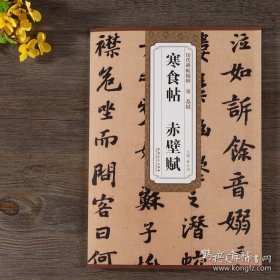 泣如訴餘音嫋
之潛
蘇子
襟危坐而問客曰何
历代碑帖精粹 宋 苏轼
寒食帖 赤壁赋